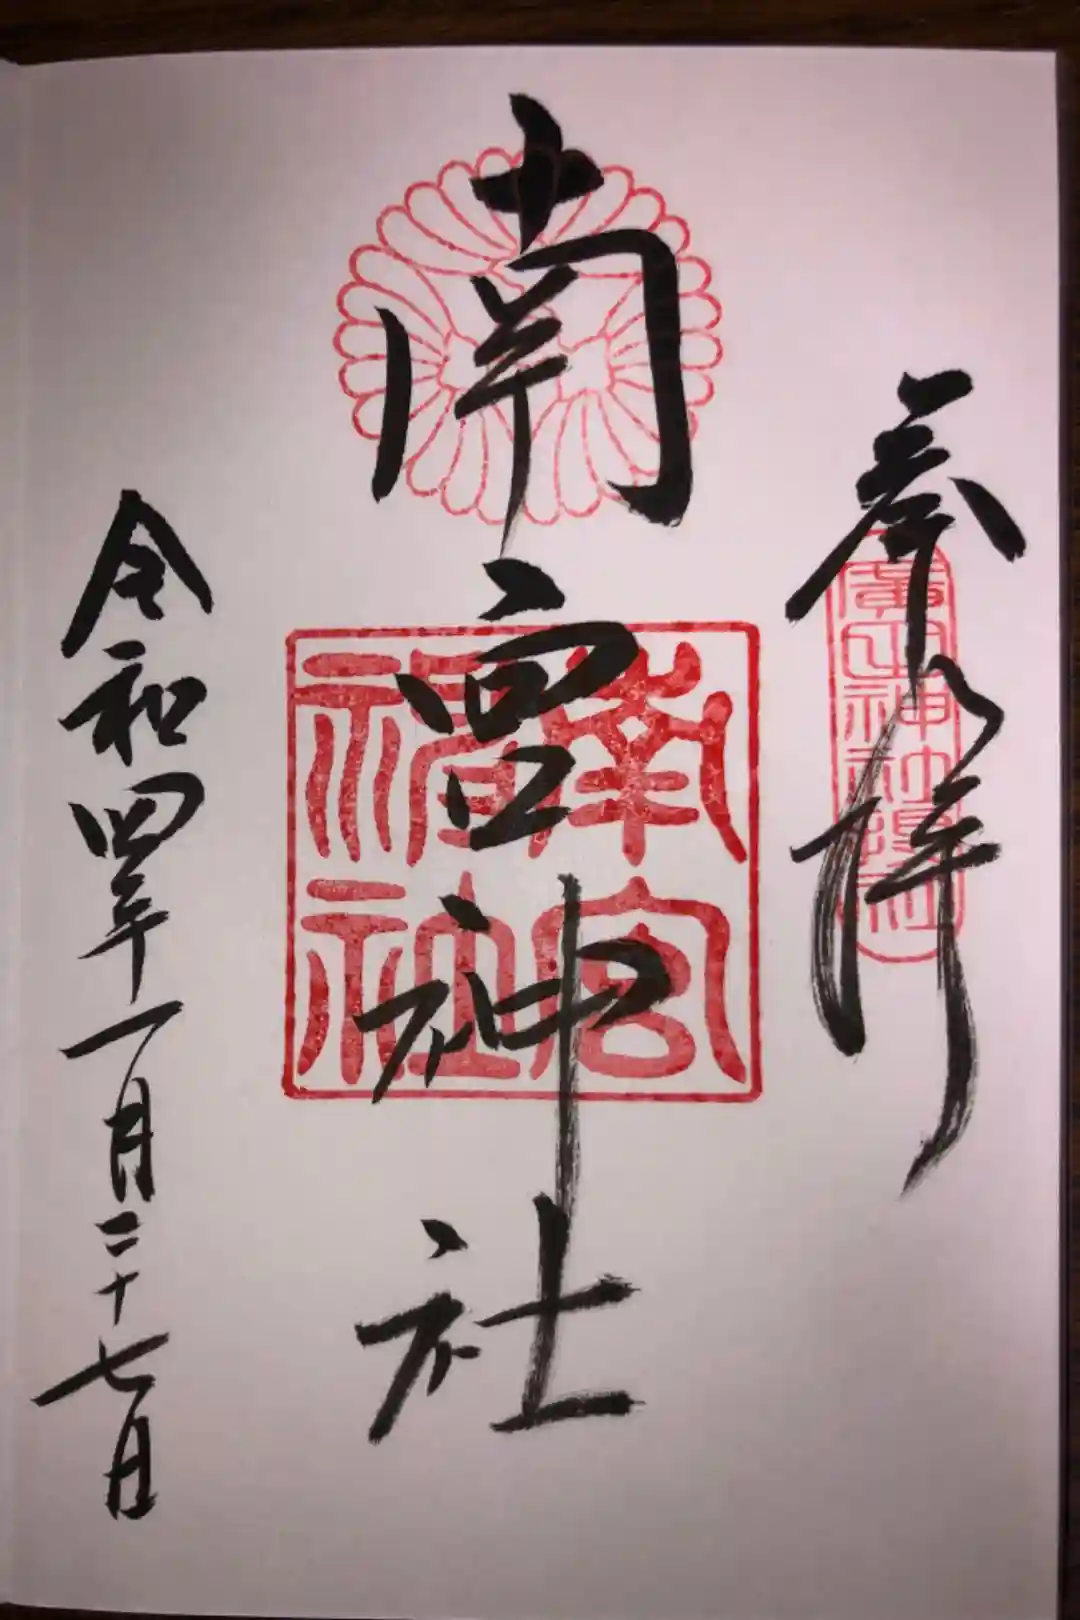 奉拝
廣田神社攝社
南宮神社
南宮神社
令和四年一月二十七日